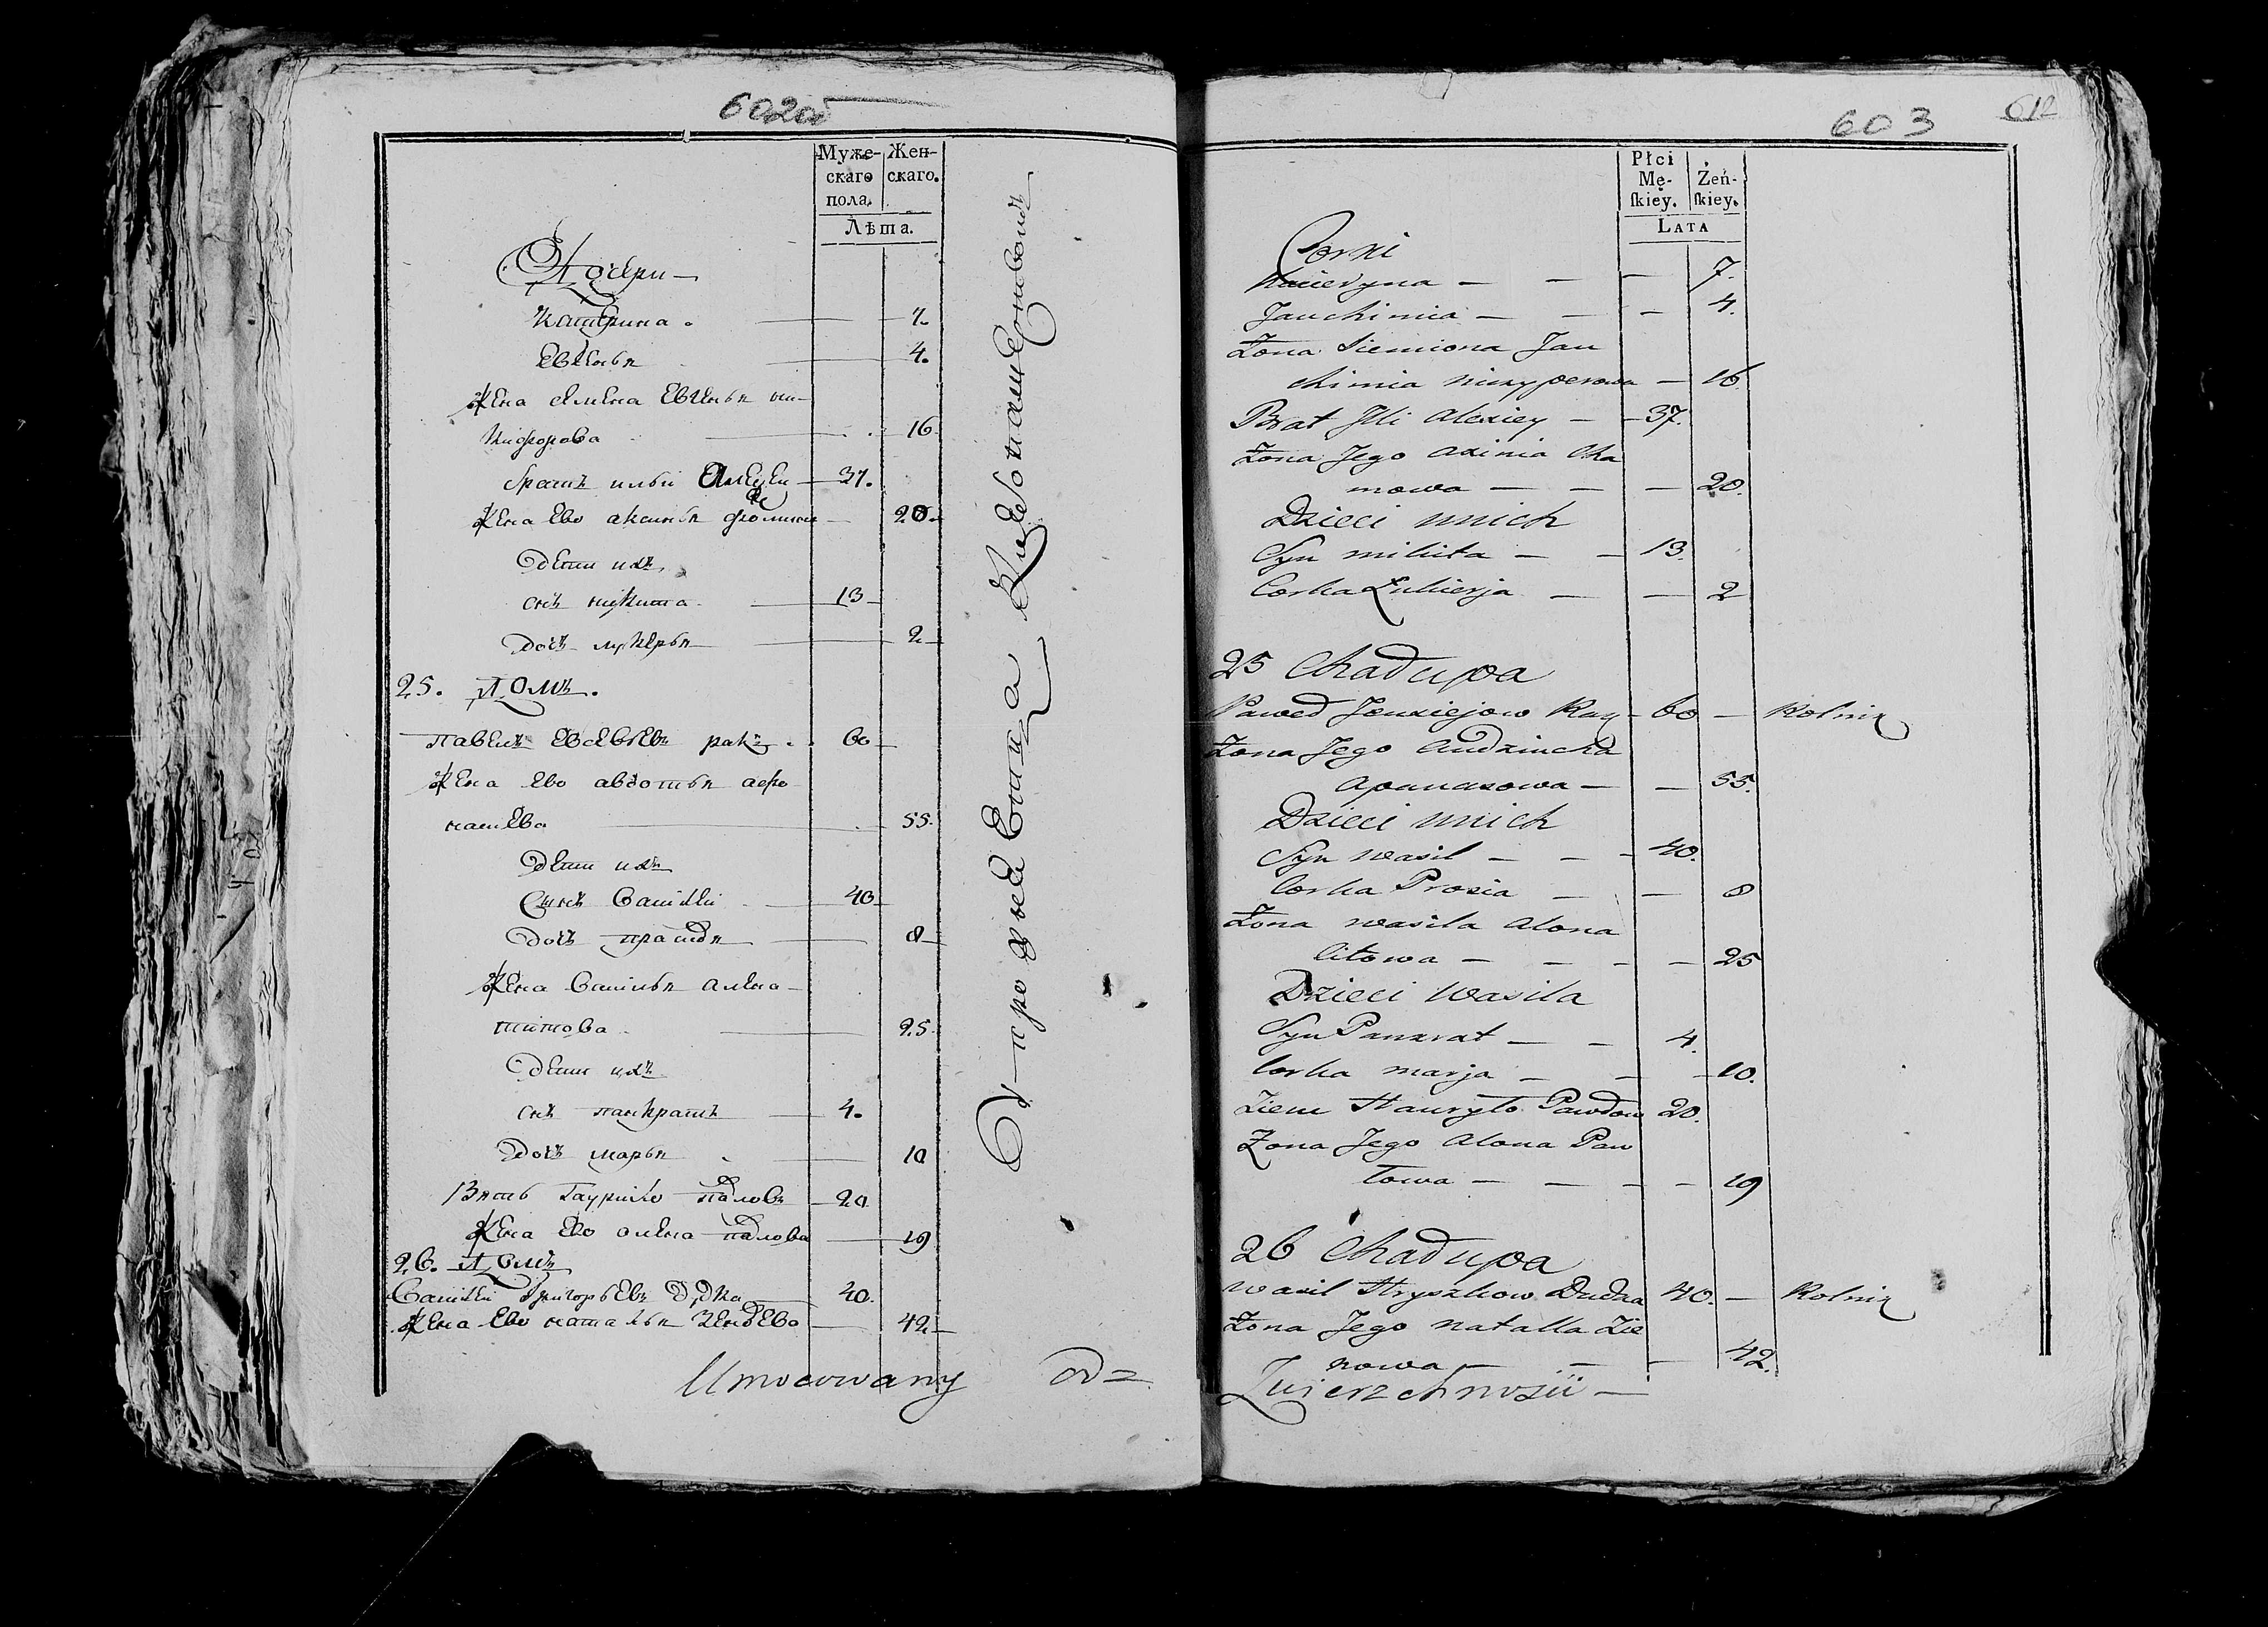 602об
Муже-
скаго
пола.
Жен-
скаго.
Лѣта.
Дочери
Катерина 7.
Евгенья 4.
Жена семена Евгенья ни-
кифорова 16
братъ ильи Алексеи 37.
Жена Ево аксинья фомина 20.
дети ихъ
снъ никита 13
дочъ лукерья 2
25. Домъ.
павелъ Евсевьевъ ракъ 60
Жена Ево авдотья афо
насьева 55.
дети ихъ
Сынъ Василеи 40
дочъ 8
Жена Василья алена
титова 25.
дети ихъ
снъ панкратъ 4.
дочъ марья 10
Зять Гаурило павловъ 20.
Жена Ево олена павлова 19
26. Домъ
Василеи Григорьевъ Дудка 40.
Жена Ево наталья 42
Umocowany od
603
612
Płci
Mę-
ſkiey.
Żeń-
ſkiey.
LATA
Corki
Kacieryna 7.
Jauchimia 4.
Żona Siemiona Jau
chimia nikyperowa 16.
Brat Jlli Alexiey 37.
Żona Jego Axinia Cha
mowa 20.
Dzieci unich
Syn mikita 13.
Corka Łukierja 2
25 Chałupa
Paweł Jeuxiejow Rak 60 Rolnik
Żona Jego Audziucha
Apanasowa 55.
Dzieci unich
Syn wasil 40.
Corka Prosia 8
Żona wasila Alona
Citowa 25
Dzieci Wasila
Syn Pankrat 4.
Corka marja 10.
Ziem Hauryło Pawłow 20.
Żona Jego Alona Paw
łowa 19
26 Chałupa
wasil Hryszkow Dudka 40. Rolnik
Żona Jego natalla Zie
nowa 42.
Zwierzchnosći